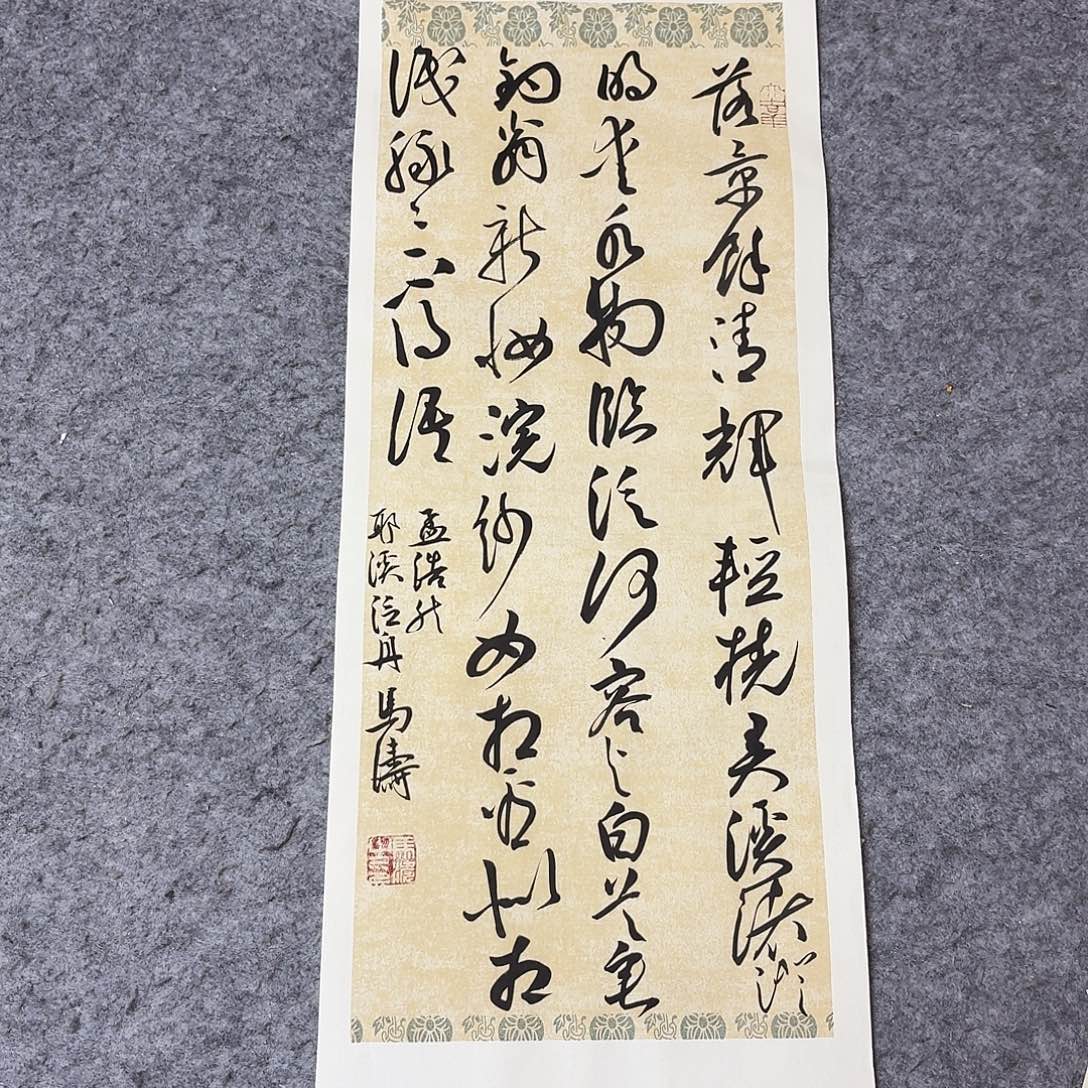 落景餘清輝輕橈弄溪渚澄
明愛水物臨泛何容与白首垂
釣翁新妝浣紗女相看似相
識脈〻不得語
孟浩然
耶溪泛舟 馬濤